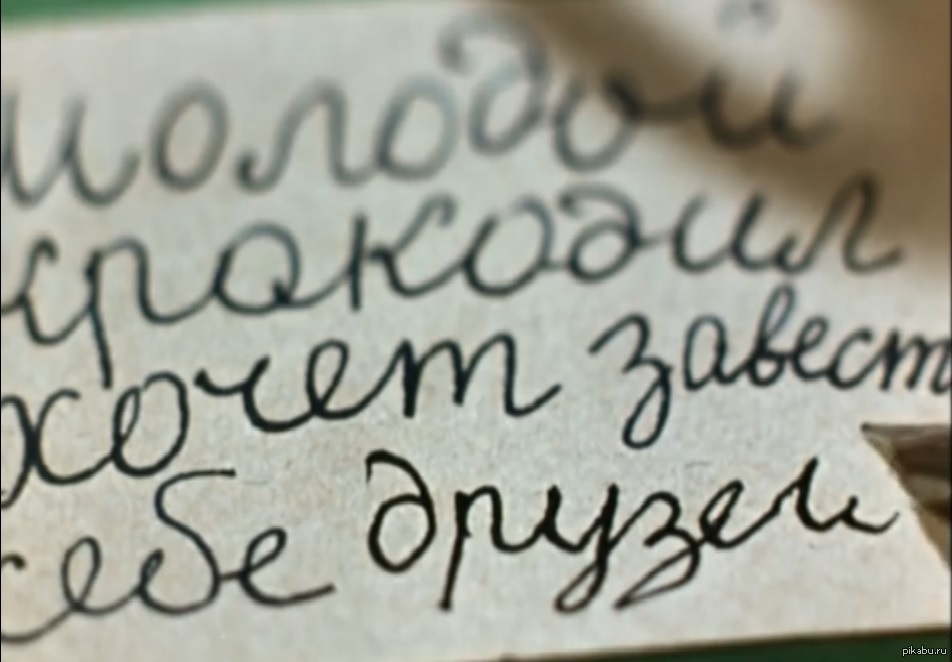 молодой
крокодил
хочет завест
себе друзеи
pikabu.ru